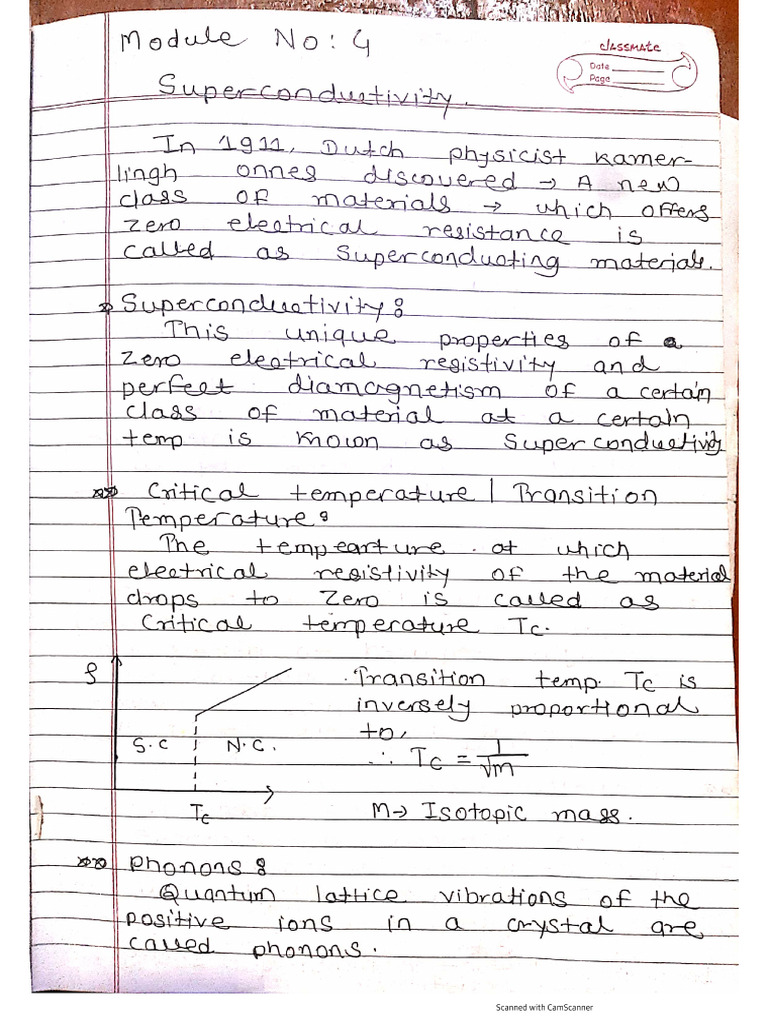 Module No: 4
classmate
Date
Page
Superconductivity.
In 1911, Dutch physicist Kamer-
lingh onnes discovered → A new
class of materials → which offers
zero electrical resistance is
called as Superconducting materials.
Superconductivity:
This unique properties of a
zero electrical resistivity and
perfect diamagnetism of a certain
class of material at a certain
temp is known as Superconductivity
Critical temperature | Transition
Temperature:
The tempearture at which
electrical resistivity of the material
drops to zero is called as
Critical temperature Tc.
ρ
Transition temp. Tc is
inversely proportional
to,
S.C N.C.
∴ Tc = 1/√m
Tc
M → Isotopic mass.
Phonons:
Quantum lattice vibrations of the
positive ions in a crystal are
called phonons.
Scanned with CamScanner